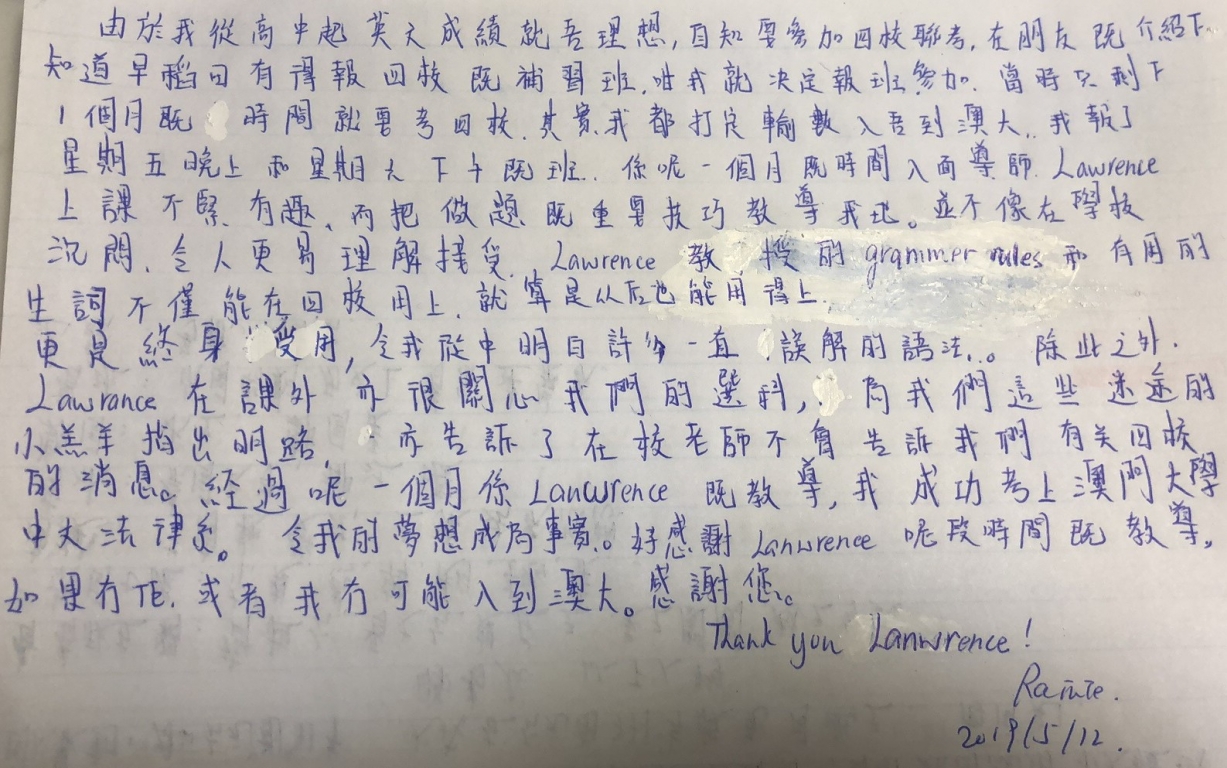 由於我從高中起英文成績就吾理想,自知要參加四校聯考,在朋友既介紹下
知道早稻田有得報四校既補習班,咁我就決定報班參加.當時只剩下
1個月既時間就要考四校.其實我都打定輸數入吾到澳大..我報了
星期五晚上和星期六下午既班..係呢一個月既時間入面導師Lawrence
上課不緊有趣,而把做題既重要技巧教導我地。並不像在學校
沉悶,令人更易理解接受.Lawrence教授的grammer rules和有用的
生詞不僅能在四校用上.就算是从后也能用得上.
更是終身受用,令我從中明白許多一直誤解的語法.。除此之外.
Lawrance在課外亦很關心我們的選科,為我們這些迷途的
小羔羊指出明路,亦告訴了在校老師不會告訴我們有关四校
的消息。經過呢一個月係Lanwrence既教導,我成功考上澳門大學
中文法律系。令我的夢想成為事實.。好感謝Lanwrence呢段時間既教導,
如果冇佢.或者我冇可能入到澳大。感謝您。
Thank you Lanwrence!
2019/5/12.